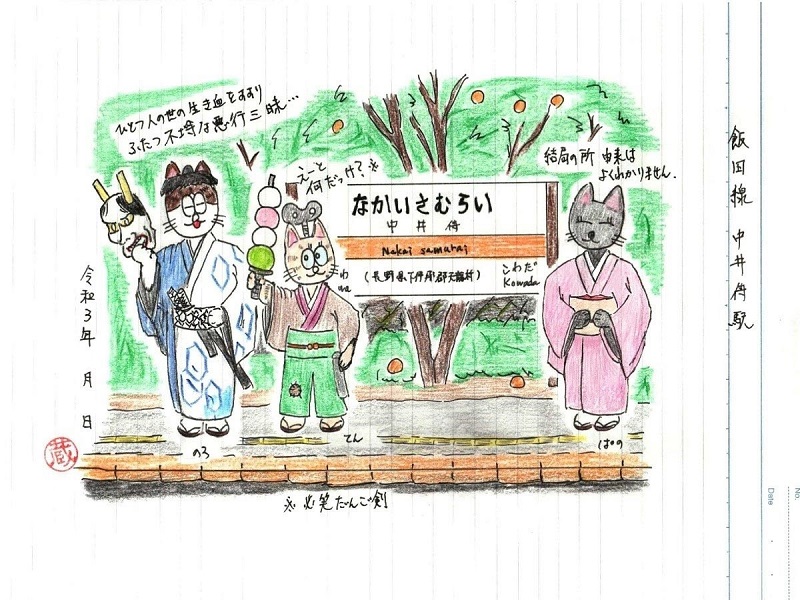 飯田線 中井侍駅
ひとつ人の世の生き血をすすり
ふたつ不埒な悪行三昧…
えーと
何だっけ?※
結局の所 由来は
よくわかりません.
なかいさむらい
中井侍
Nakai samurai
(長野県下伊那郡天龍村)
こわだ
Kowada
わ
wa
令和3年 月 日
蔵
のろ
てん
ぱの
※必笑だんご剣
No.
Date